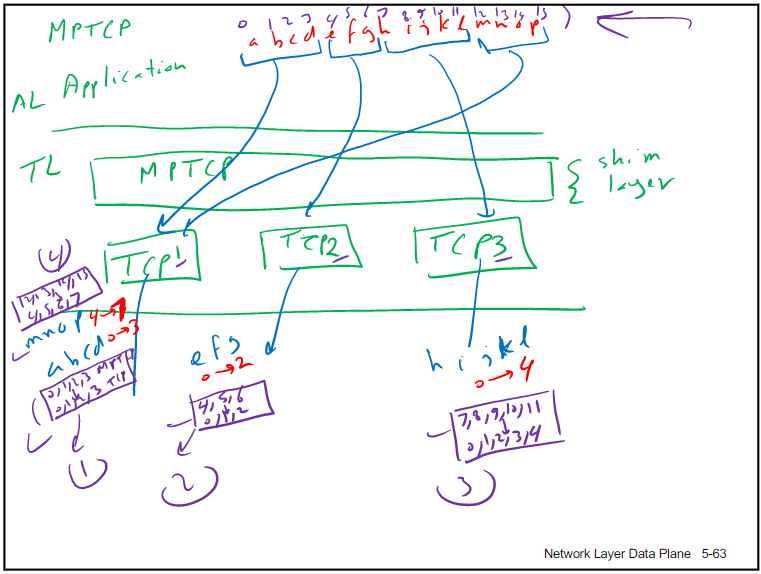 MPTCP
0 1 2 3 4 5 6 7 8 9 10 11 12 13 14 15
a b c d e f g h i j k l m n o p
AL Application
TL MPTCP
shim layer
TCP1 TCP2 TCP3
4
12, 13, 14, 15
4, 5, 6, 7
mnop 4→7
abcd 0→3
0, 1, 2, 3 MPTCP
0, 1, 2, 3 TCP
1
efg
0→2
4, 5, 6
0, 1, 2
2
h i j k l
0→4
7, 8, 9, 10, 11
0, 1, 2, 3, 4
3
Network Layer Data Plane 5-63